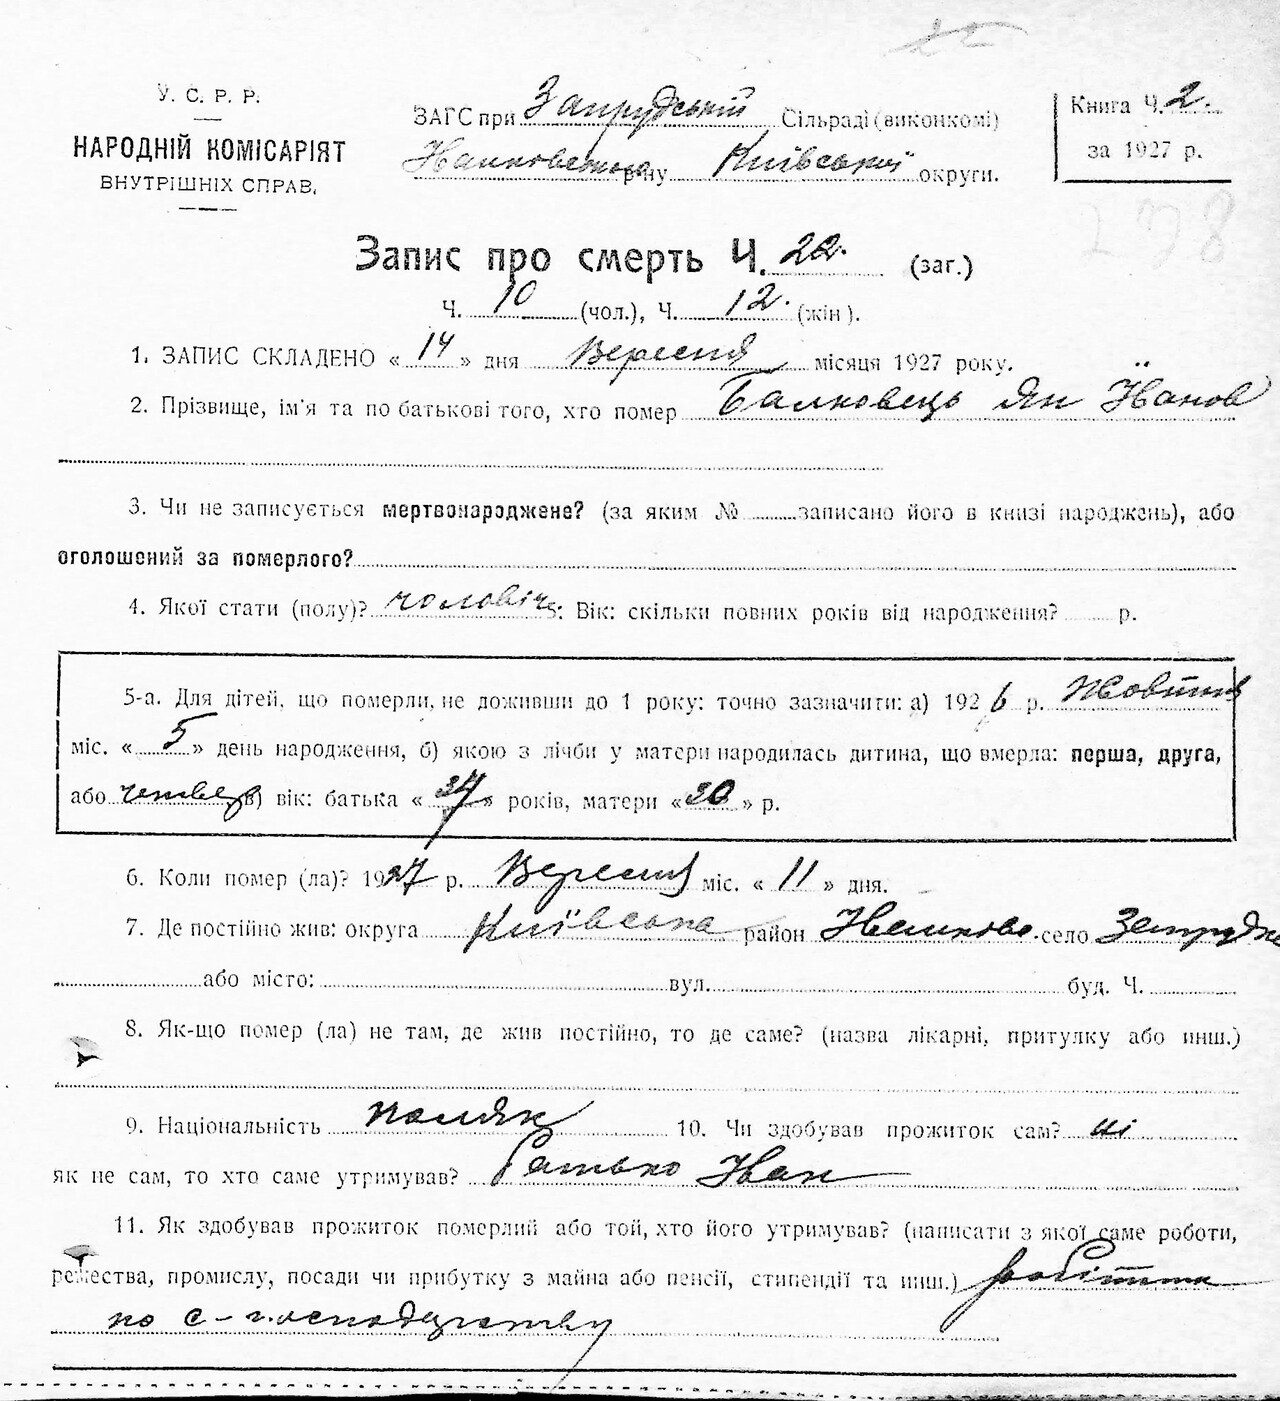 У. С. Р. Р.
НАРОДНІЙ КОМІСАРІЯТ
ВНУТРІШНІХ СПРАВ.
ЗАГС при Запрудській Сільраді (виконкомі)
р-ну Київської округи.
Книга Ч. 2.
за 1927 р.
278
Запис про смерть Ч. 22. (заг.)
Ч. 10 (чол.), Ч. 12. (жін).
1. ЗАПИС СКЛАДЕНО « 14 » дня Вересня місяця 1927 року.
2. Прізвище, ім'я та по батькові того, хто помер Балковець Ян Йванов
3. Чи не записується мертвонароджене? (за яким № записано його в книзі народжень), або
оголошений за померлого?
4. Якої статі (полу)? чоловіч.: Вік: скільки повних років від народження? р.
5-а. Для дітей, що померли, не доживши до 1 року: точно зазначити: а) 1926 р. Жовтня
міс. « 5 » день народження, б) якою з лічби у матери народилась дитина, що вмерла: перша, друга,
або четвер в) вік: батька « 37 » років, матери « 30 » р.
6. Коли помер (ла)? 1927 р. Вересня міс. « 11 » дня.
7. Де постійно жив: округа Київська район село
або місто: вул. буд. Ч.
8. Як-що помер (ла) не там, де жив постійно, то де саме? (назва лікарні, притулку або инш.)
9. Національність поляк 10. Чи здобував прожиток сам? ні
як не сам, то хто саме утримував? Батько Йван
11. Як здобував прожиток померлий або той, хто його утримував? (написати з якої саме роботи,
ремества, промислу, посади чи прибутку з майна або пенсії, стипендії та инш.) робітник
по с-господарству